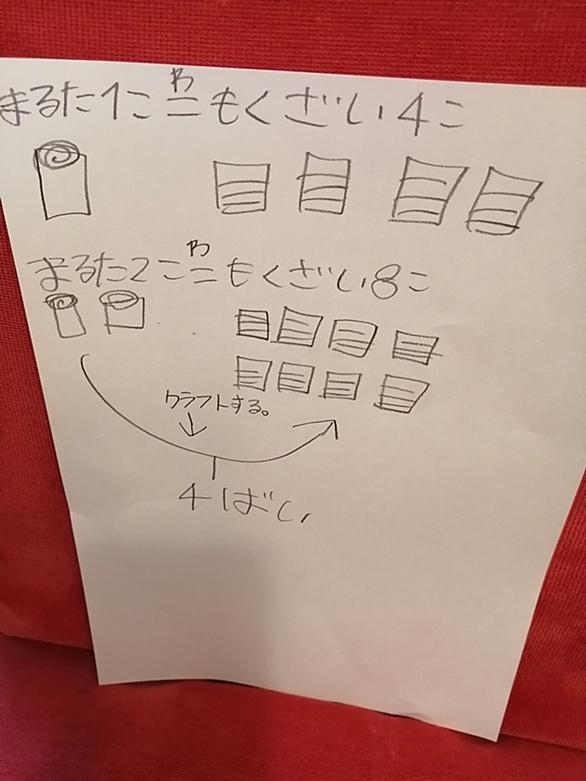 まるた1こ=もくざい4こ
は
まるた2こ=もくざい8こ
は
クラフトする。
↓
4ばい